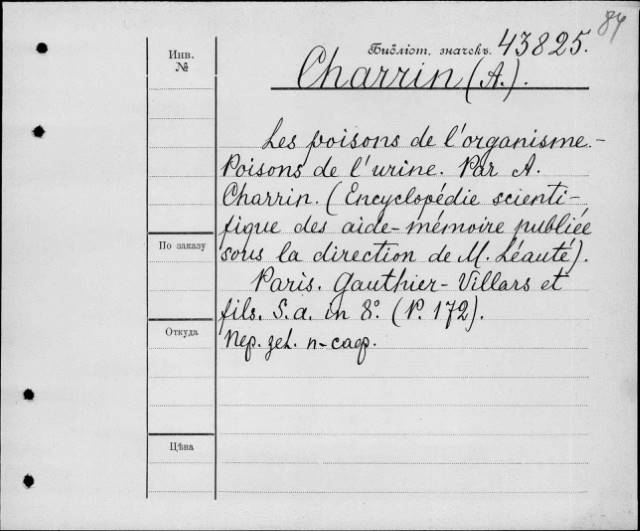 84
Инв.
№
Библіот. значекъ. 43825.
Charrin (A.).
Les poisons de l'organisme. -
Poisons de l'urine. Par A.
Charrin. (Encyclopédie scienti-
fique des aide-mémoire publiée
sous la direction de M. Léauté).
Paris. Gauthier-Villars et
fils. S. a. in 8°. (P. 172).
По заказу
Откуда
Цѣна